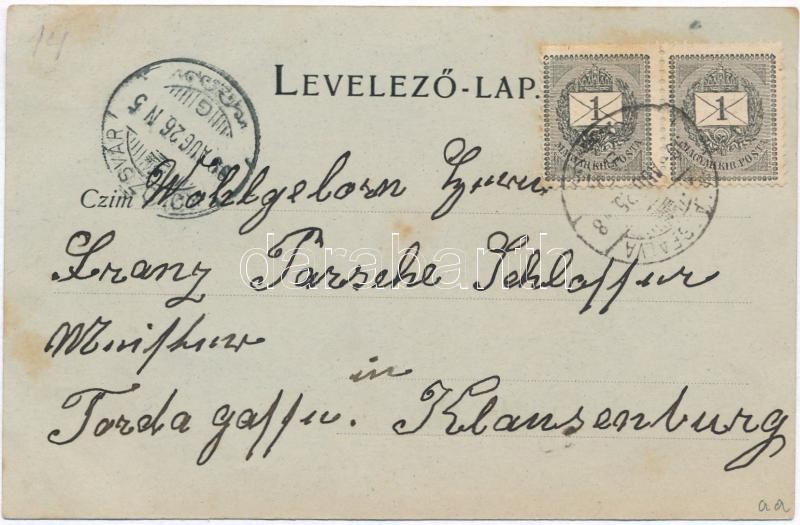 14
LEVELEZŐ-LAP.
1 1
MAGYAR KIR. POSTA MAGYAR KIR. POSTA
SVÁR
AUG 26 N 5
AUG 25
Czim Wohlgeborn Herrn
darabanth
Franz Parsche Schlosser
Meister
in
Torda gasse. Klausenburg
aa